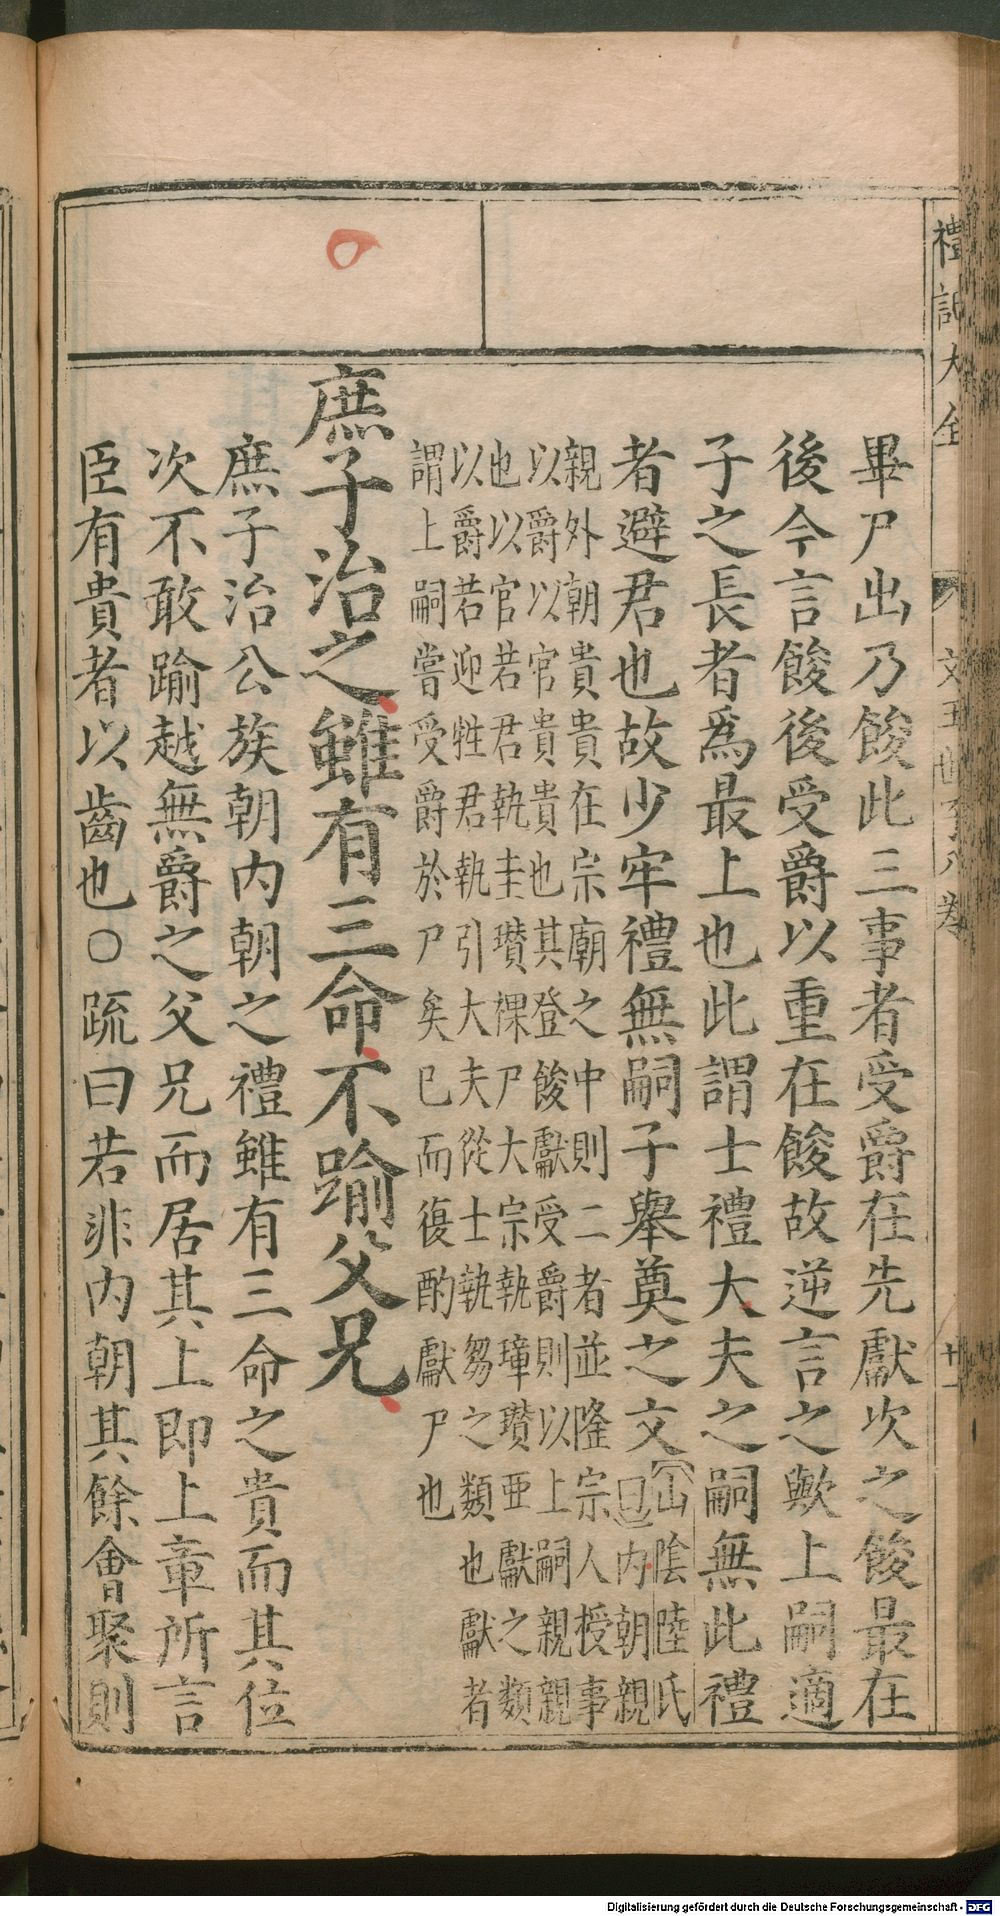 禮記大全 文王世子八卷 廿一
畢尸出乃餕此三事者受爵在先獻次之餕最在
後今言餕後受爵以重在餕故逆言之歟上嗣適
子之長者爲最上也此謂士禮大夫之嗣無此禮
者避君也故少牢禮無嗣子舉奠之文山陰陸氏
曰内朝親
親外朝貴貴在宗廟之中則二者並隆宗人授事
以爵以官貴貴也其登餕獻受爵則以上嗣親親
也以官若君執圭瓚祼尸大宗執璋瓚亞獻之類
以爵若迎牲君執引大夫從士執芻之類也獻者
謂上嗣嘗受爵於尸矣已而復酌獻尸也
庶子治之雖有三命不踰父兄
庶子治公族朝内朝之禮雖有三命之貴而其位
次不敢踰越無爵之父兄而居其上即上章所言
臣有貴者以齒也○疏曰若非内朝其餘會聚則
Digitalisierung gefördert durch die Deutsche Forschungsgemeinschaft - DFG